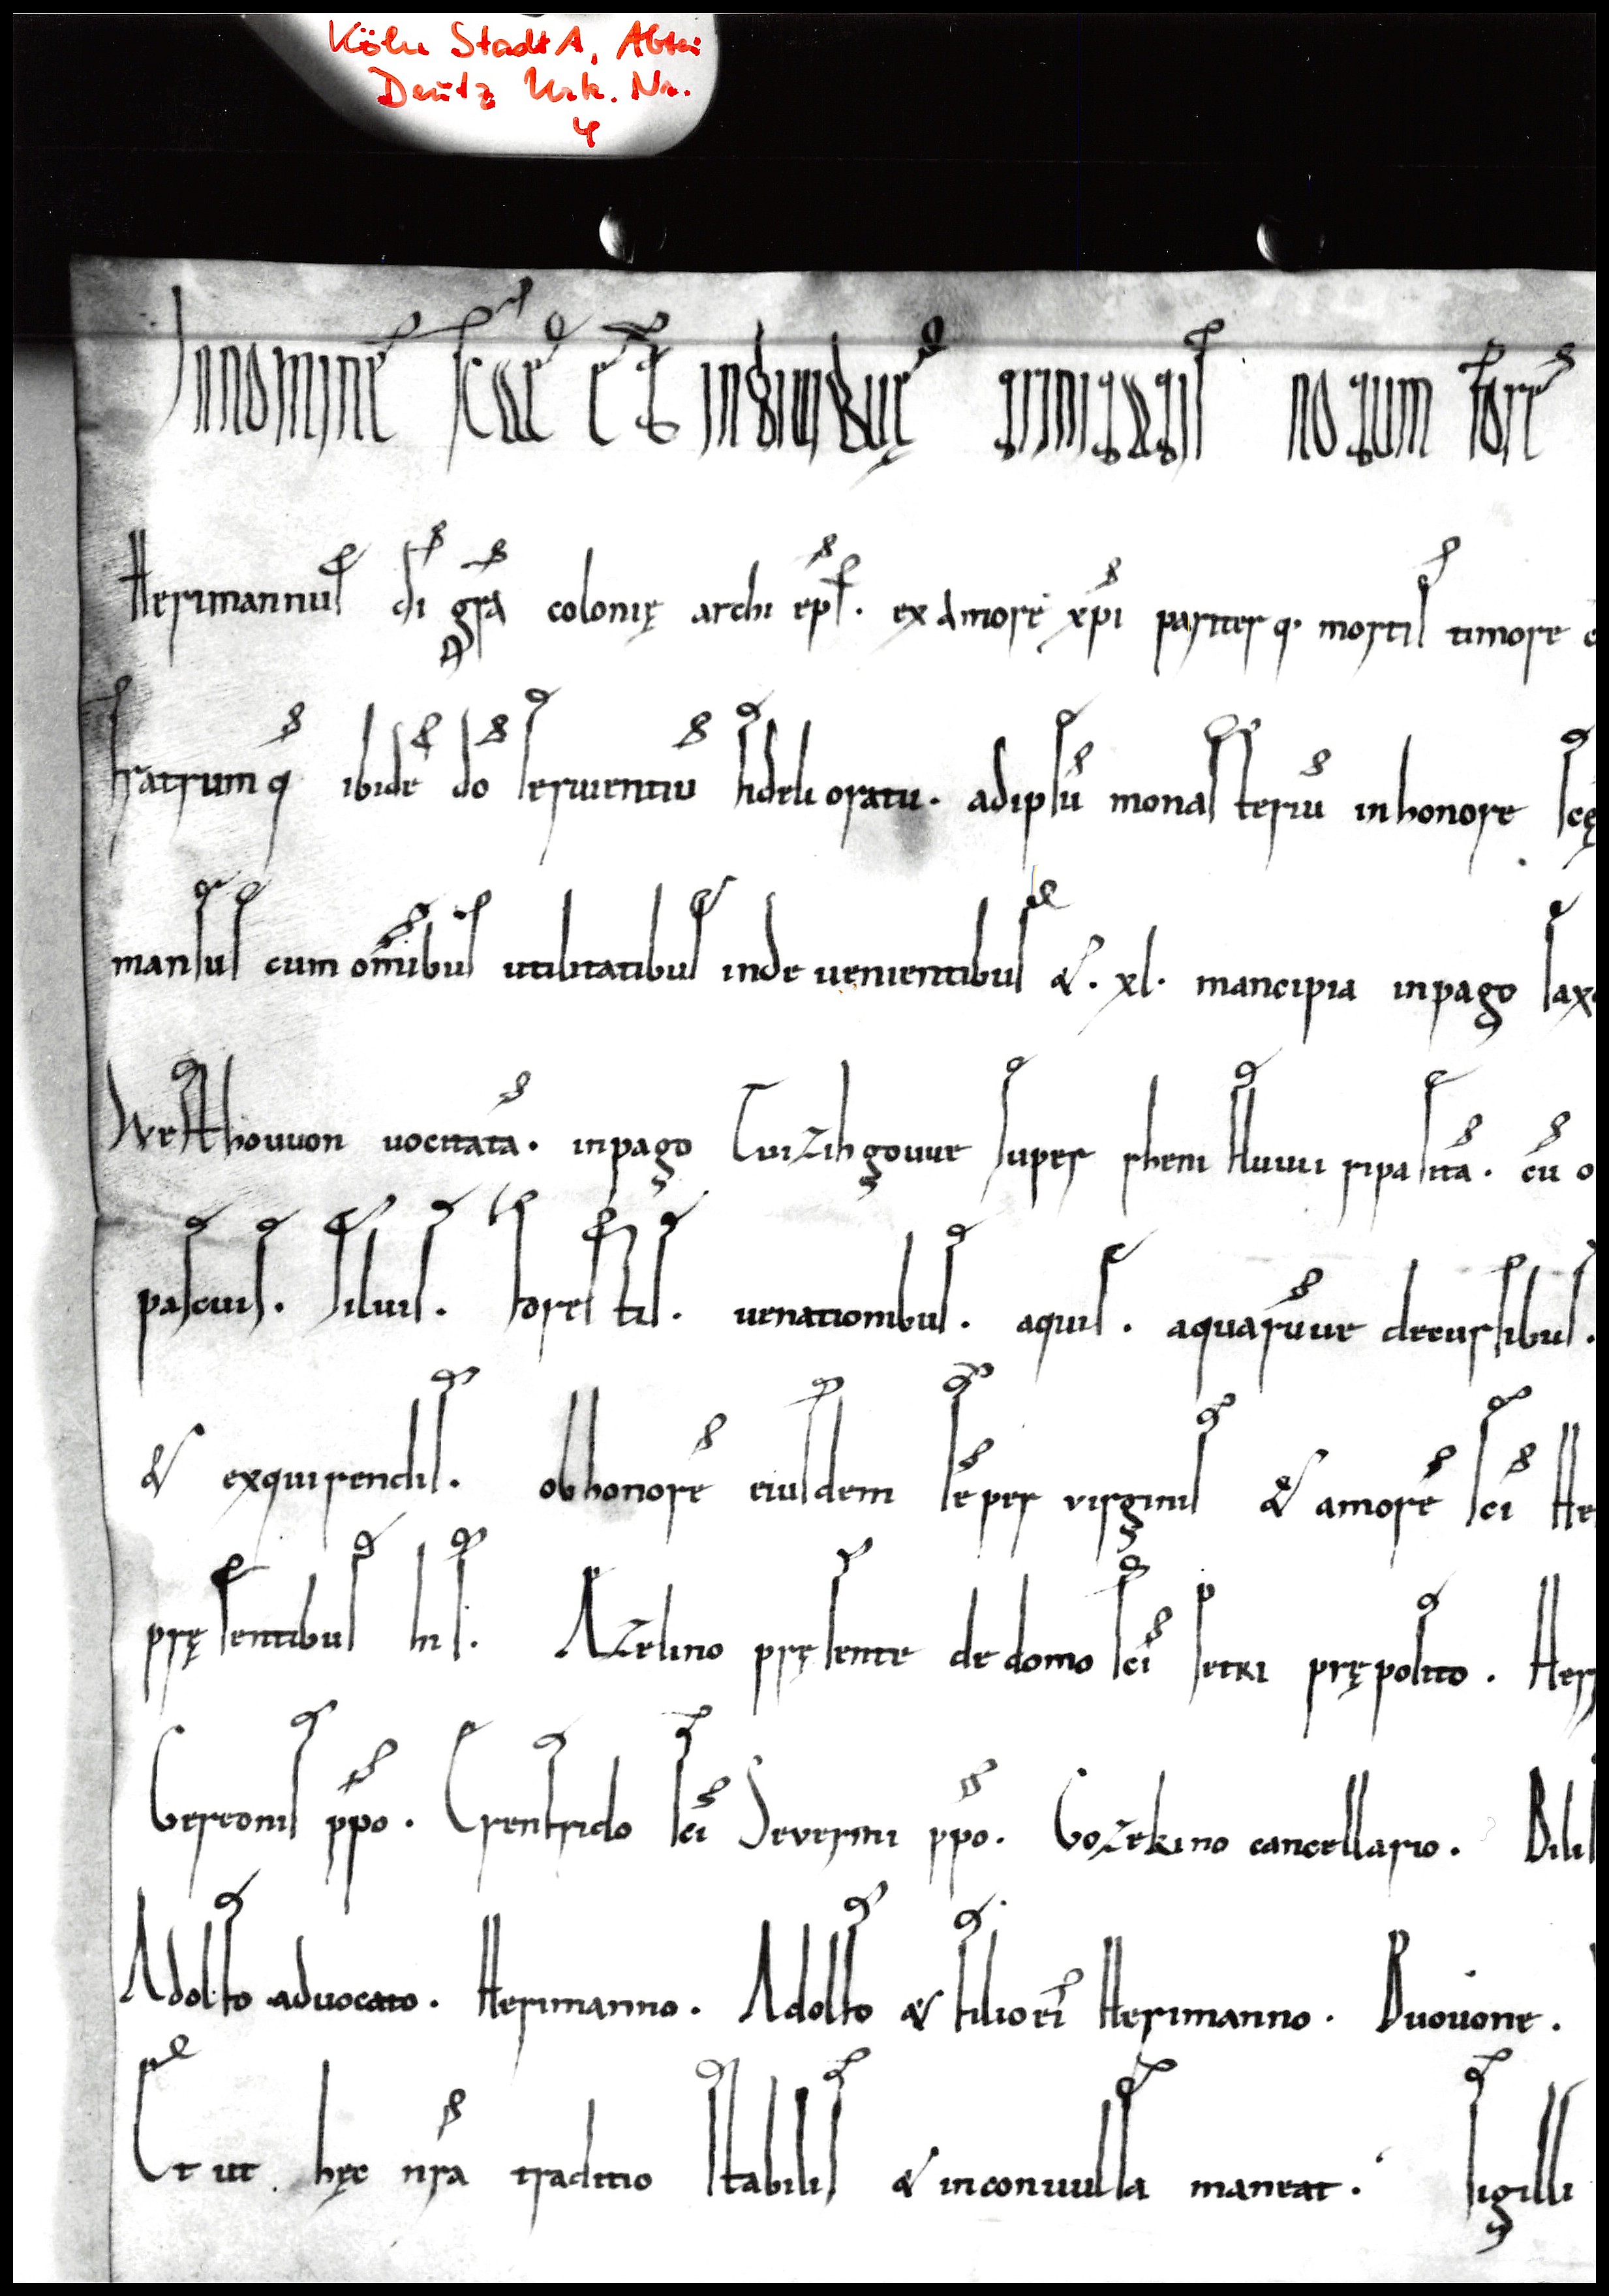 Köln StadtA, Abtei
Deutz Urk. Nr.
4
Innomine scae et indiuiduę trinitatis notum fore
Herimannus di gra colonię archi eps. ex amore xpi pariterq. mortis timore
fratrumq ibidē dō seruientiū fideli oratu. adipsū monasteriū inhonore scę
mansus cum omnibus utilitatibus inde uenientibus &. xl. mancipia inpago sax
Westhouuon uocitatā. inpago Tuizihgouue super rheni fluuii ripa sitā. cū o
pascuis. siluis. forestis. uenationibus. aquis. aquarūue decursibus.
& exquirendis. obhonorē eiusdem sēper virginis & amorē sci He
pręsentibus his. Azelino pręsente de domo sci petri pręposito. Her
Gereonis ppo. Erenfrido sci Severini ppo. Gozekino cancellario. Bili
Adolfo advocato. Herimanno. Adolfo & filio ei Herimanno. Buouone.
Et ut hęc nra traditio stabilis & inconuulsa maneat. sigilli